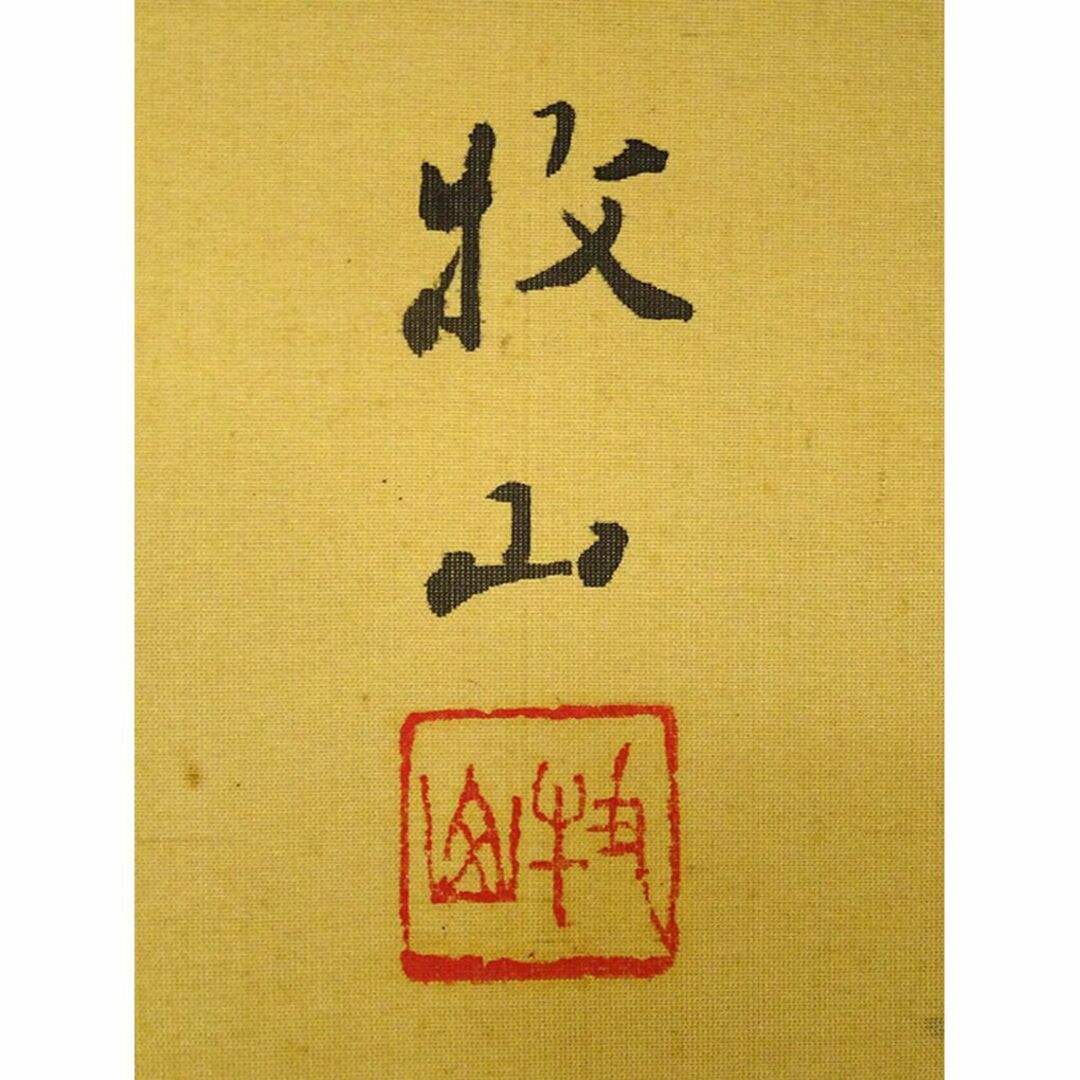 牧山
牧山